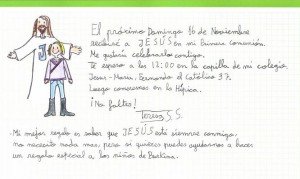 El próximo Domingo 16 de Noviembre
recibiré a JESÚS en mi Primera Comunión.
Me gustaría celebrarlo contigo.
Te espero a las 12:00 en la capilla de mi colegio
Jesús-María, Fernando el Católico 37.
Luego comeremos en la Hípica.
¡No faltes!
Teresa S.S.
Mi mejor regalo es saber que JESÚS está siempre conmigo,
no necesito nada más, pero si quieres puedes ayudarnos a hacer
un regalo especial a los niños de